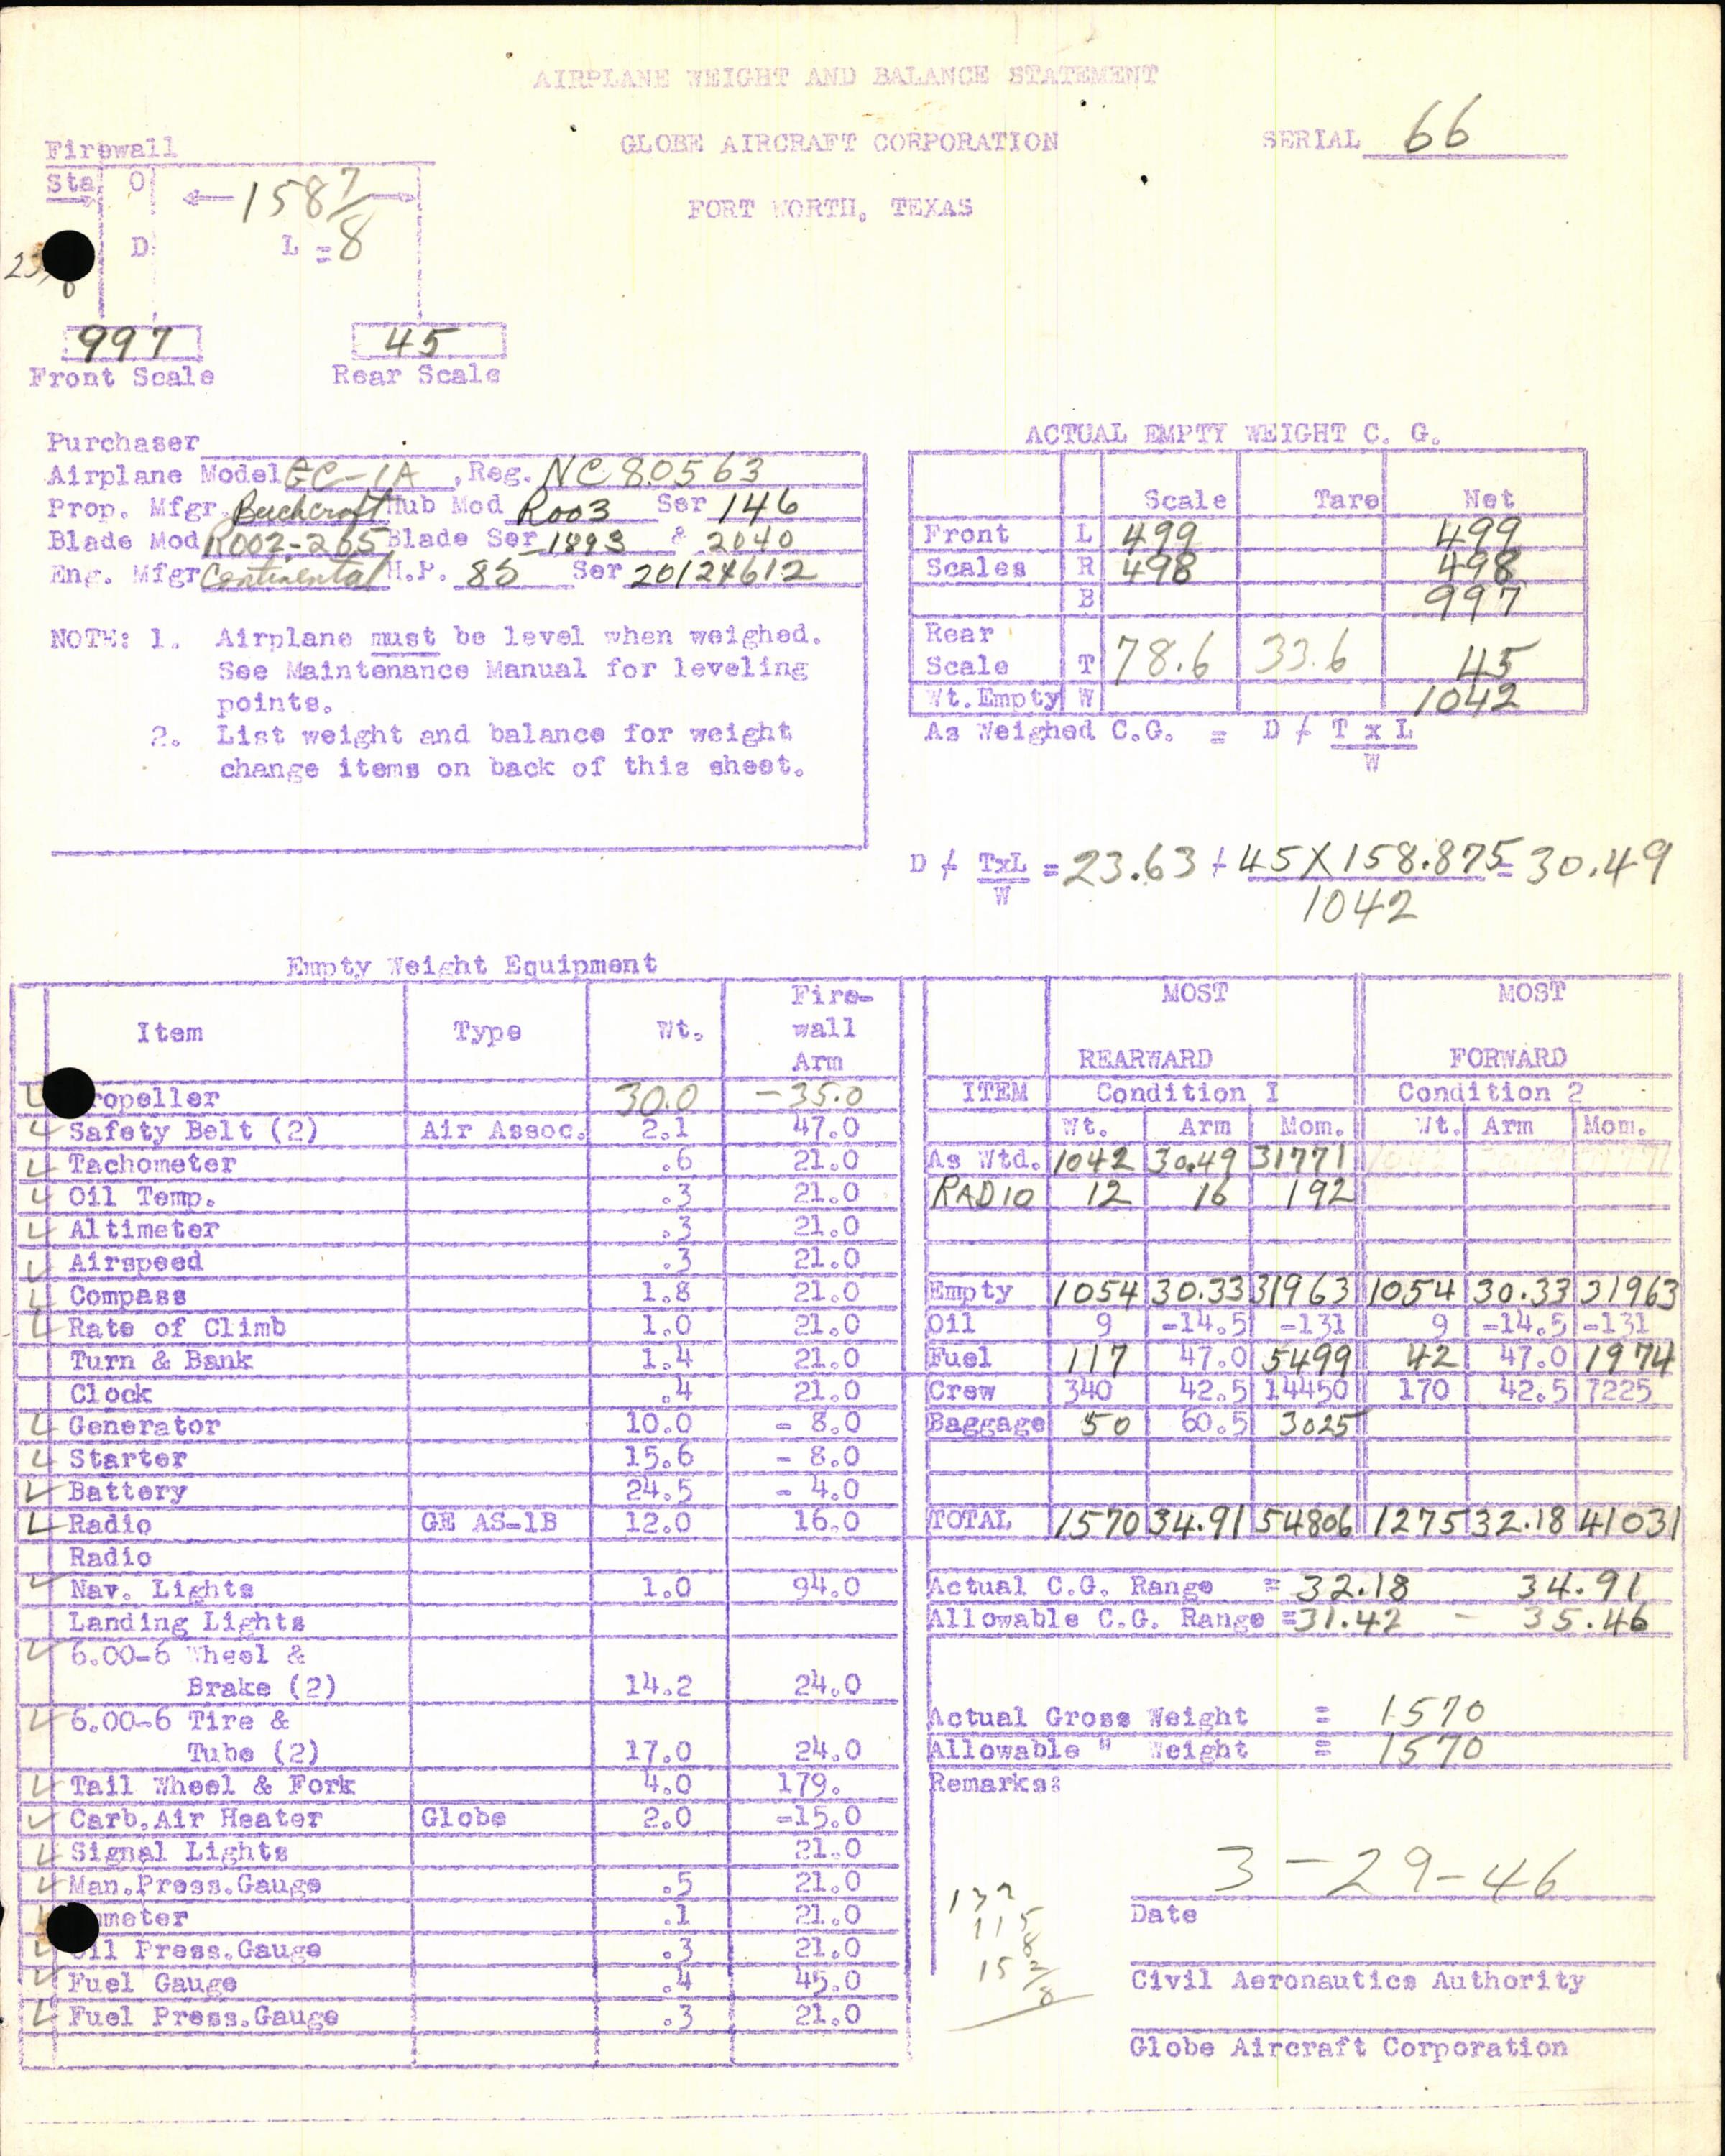 AIRPLANE WEIGHT AND BALANCE STATEMENT
GLOBE AIRCRAFT CORPORATION
SERIAL 66
FORT WORTH, TEXAS
Firewall
Sta 0
158 7/8
D L =
997 45
Front Scale Rear Scale
Purchaser
Airplane Model GC-1A, Reg. NC 80563
Prop. Mfgr. Beechcraft Hub Mod R003 Ser 146
Blade Mod R002-205 Blade Ser 1893 & 2040
Eng. Mfgr Continental H.P. 85 Ser 20124612
NOTE: 1. Airplane must be level when weighed.
See Maintenance Manual for leveling
points.
2. List weight and balance for weight
change items on back of this sheet.
ACTUAL EMPTY WEIGHT C. G.
Scale Tare Net
Front L 499 499
Scales R 498 498
B 997
Rear
Scale T 78.6 33.6 45
Wt. Empty W 1042
As Weighed C.G. = D + T x L
W
D + TxL = 23.63 + 45 X 158.875 = 30.49
W 1042
Empty Weight Equipment
Item Type Wt. Fire-
wall
Arm
Propeller 30.0 -35.0
Safety Belt (2) Air Assoc. 2.1 47.0
Tachometer .6 21.0
Oil Temp. .3 21.0
Altimeter .3 21.0
Airspeed .3 21.0
Compass 1.8 21.0
Rate of Climb 1.0 21.0
Turn & Bank 1.4 21.0
Clock .4 21.0
Generator 10.0 - 8.0
Starter 15.6 - 8.0
Battery 24.5 - 4.0
Radio GE AS-1B 12.0 16.0
Radio
Nav. Lights 1.0 94.0
Landing Lights
6.00-6 Wheel &
Brake (2) 14.2 24.0
6.00-6 Tire &
Tube (2) 17.0 24.0
Tail Wheel & Fork 4.0 179.
Carb.Air Heater Globe 2.0 -15.0
Signal Lights 21.0
Man.Press.Gauge .5 21.0
mmeter .1 21.0
Oil Press.Gauge .3 21.0
Fuel Gauge .4 45.0
Fuel Press.Gauge .3 21.0
MOST MOST
REARWARD FORWARD
ITEM Condition I Condition 2
Wt. Arm Mom. Wt. Arm Mom.
As Wtd. 1042 30.49 31771
RADIO 12 16 192
Empty 1054 30.33 31963 1054 30.33 31963
Oil 9 -14.5 -131 9 -14.5 -131
Fuel 117 47.0 5499 42 47.0 1974
Crew 340 42.5 14450 170 42.5 7225
Baggage 50 60.5 3025
TOTAL 1570 34.91 54806 1275 32.18 41031
Actual C.G. Range = 32.18 34.91
Allowable C.G. Range = 31.42 - 35.46
Actual Gross Weight = 1570
Allowable " Weight = 1570
Remarks:
3-29-46
Date
Civil Aeronautics Authority
Globe Aircraft Corporation